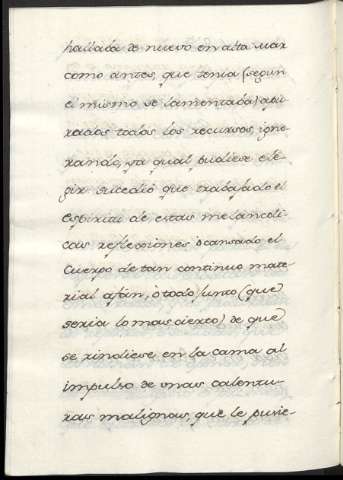 hallada de nuevo en alta mar
como antes, que tenia (segun
el mismo se lamentaba) apu-
rados todos los recursos, igno-
rando, ya qual pudiese ele-
gir sucedió que trabajado el
Espiritu de estas melancoli-
cas reflecsiones ò cansado el
Cuerpo de tan continuo mate-
rial afán, ò todo junto (que
seria lo mas cierto) de que
se rindiese en la cama al
impulso de unas calentu-
ras malignas, que le pusie-